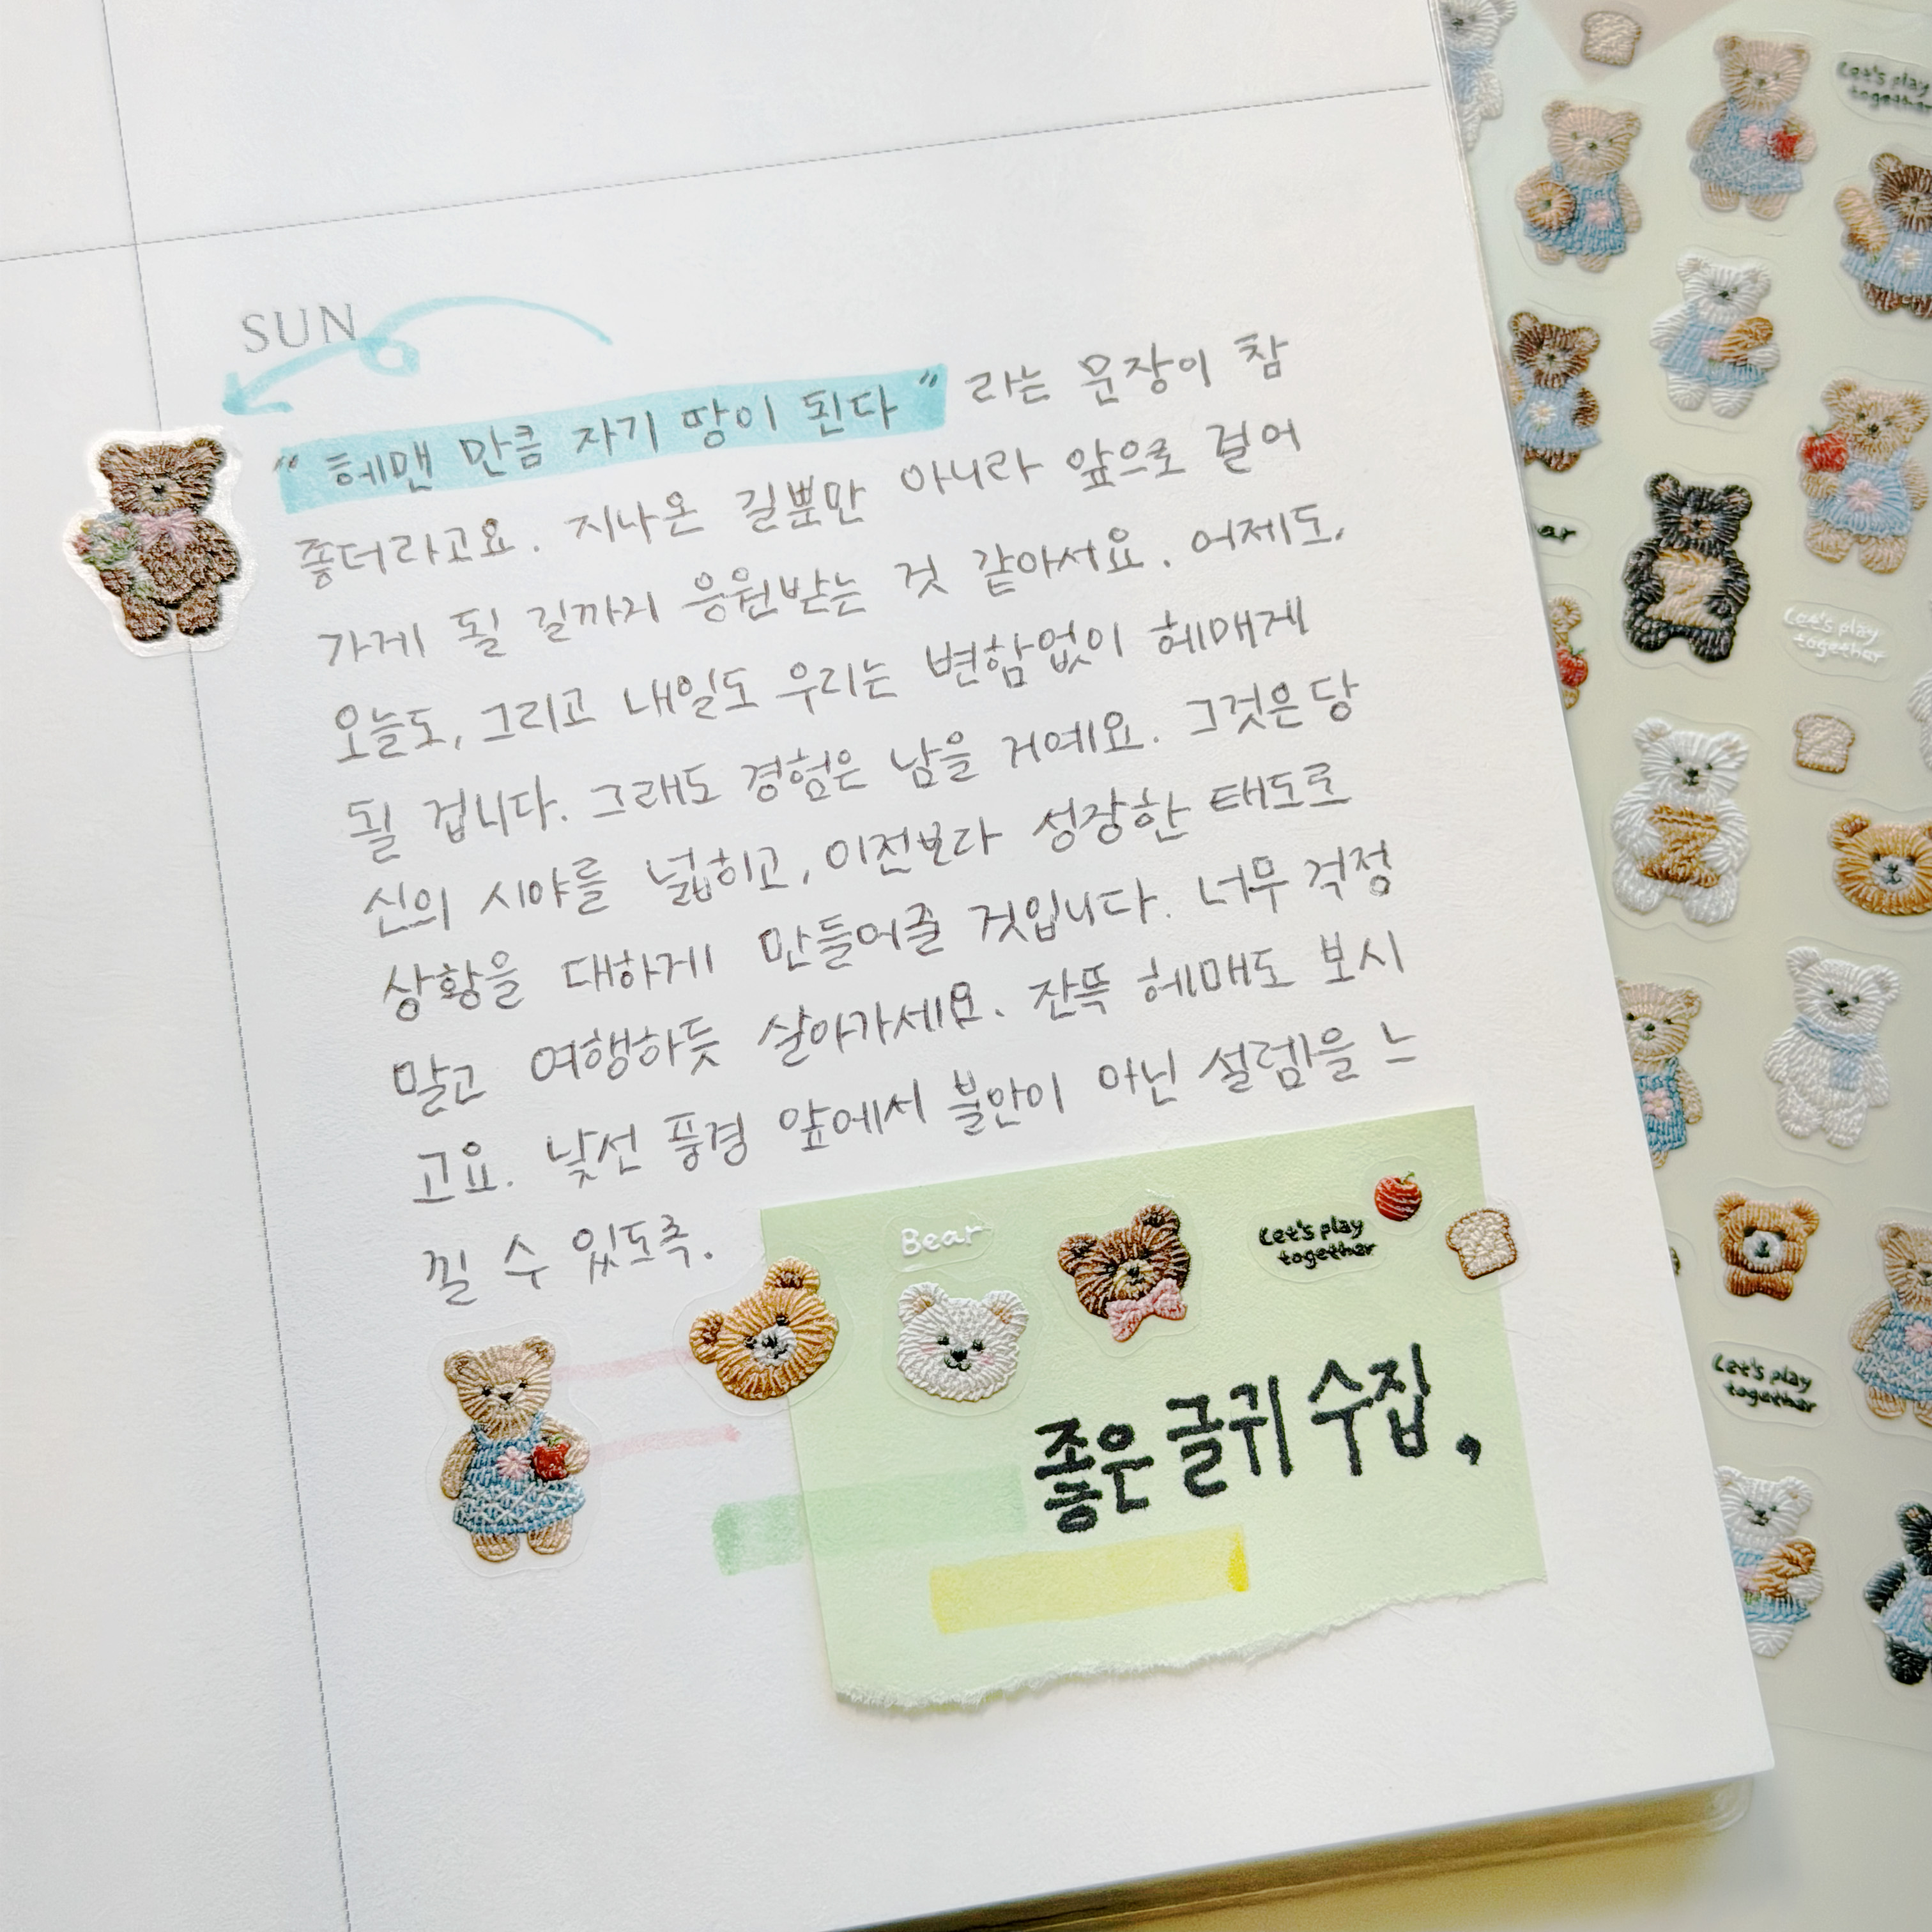 SUN
"헤맨 만큼 자기 땅이 된다" 라는 문장이 참
좋더라고요. 지나온 길뿐만 아니라 앞으로 걸어
가게 될 길까지 응원받는 것 같아서요. 어제도,
오늘도, 그리고 내일도 우리는 변함없이 헤매게
될 겁니다. 그래도 경험은 남을 거예요. 그것은 당
신의 시야를 넓히고, 이전보다 성장한 태도로
상황을 대하게 만들어줄 것입니다. 너무 걱정
말고 여행하듯 살아가세요. 잔뜩 헤매도 보시
고요. 낯선 풍경 앞에서 불안이 아닌 설렘을 느
낄 수 있도록.
Bear
Let's play
together
좋은 글귀 수집,
Let's play
together
Let's play
together
Let's play
together